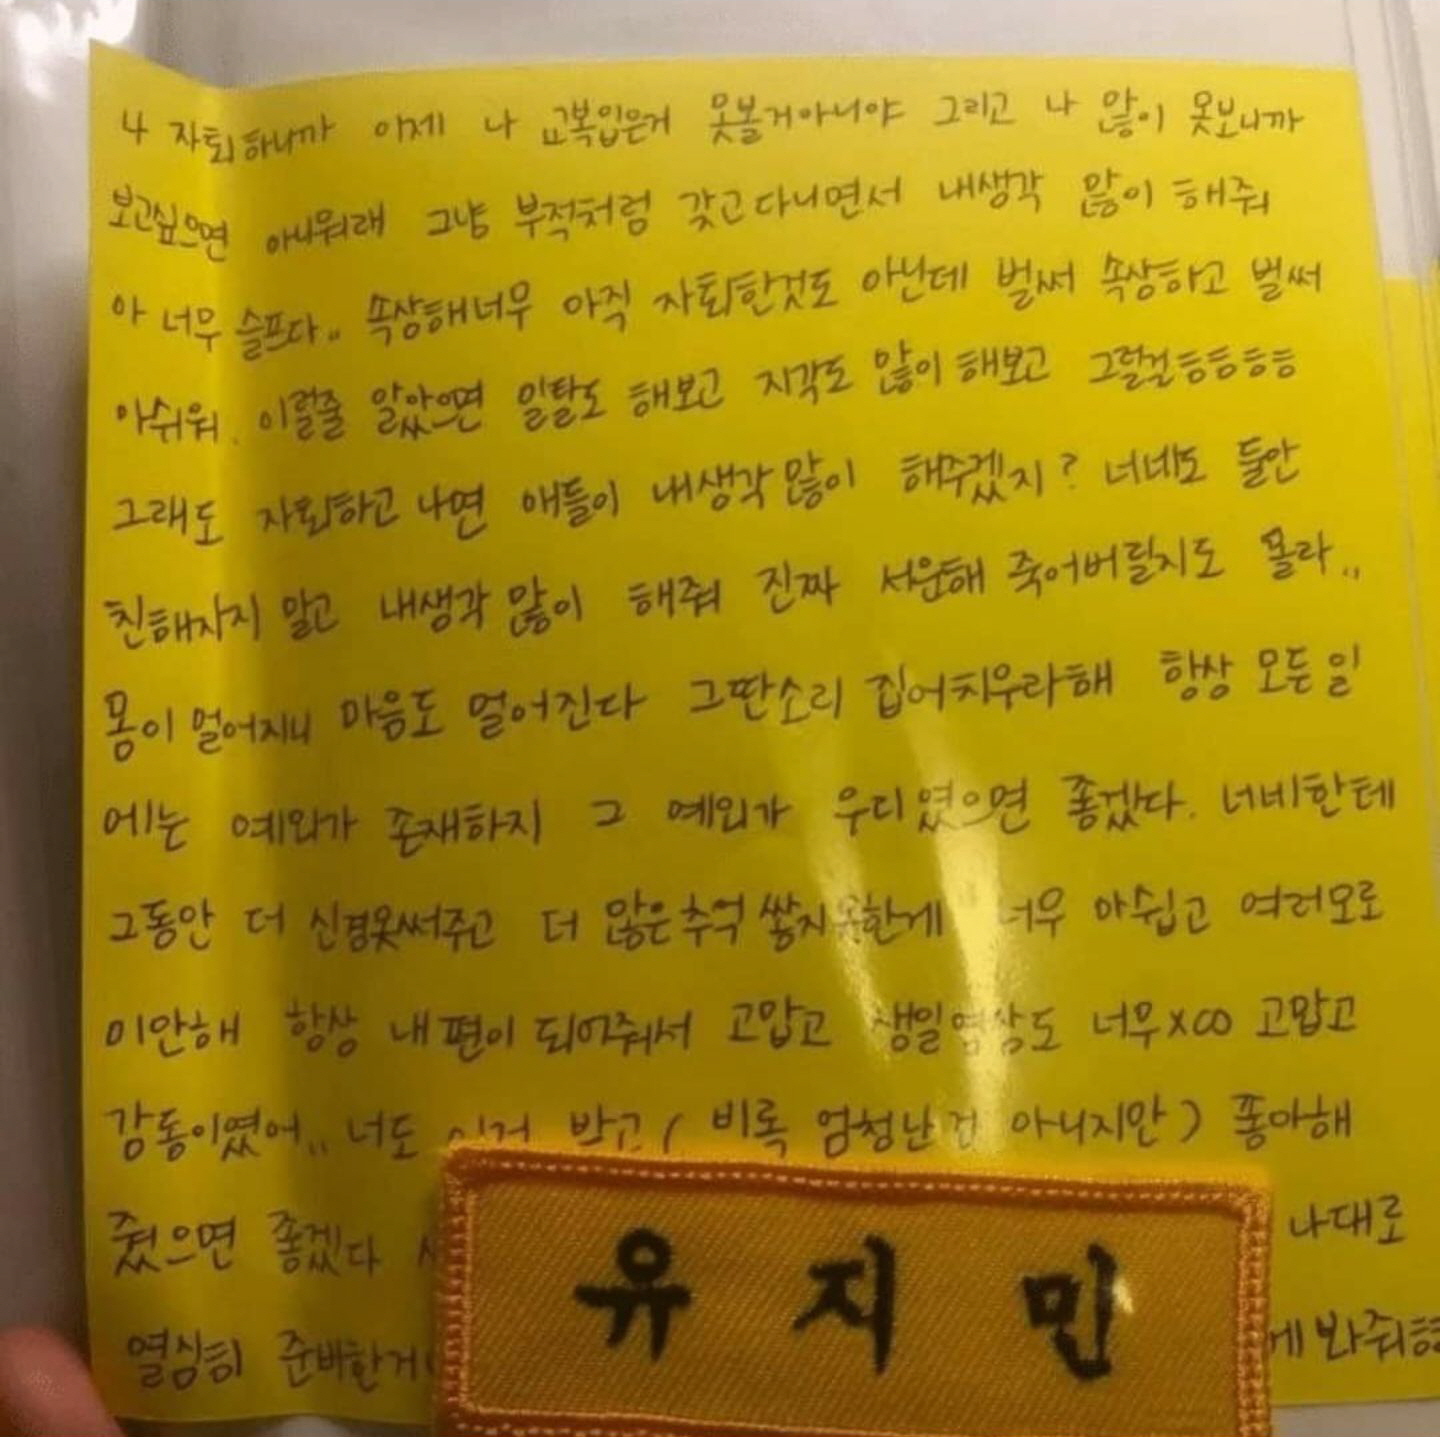 나 자퇴하니까 이제 나 교복입은거 못볼거아니야 그리고 나 많이 못보니까
보고싶으면 아니뭐래 그냥 부적처럼 갖고다니면서 내생각 많이 해줘
아 너무 슬프다.. 속상해너무 아직 자퇴한것도 아닌데 벌써 속상하고 벌써
아쉬워. 이럴줄 알았으면 일탈도 해보고 지각도 많이 해보고 그럴걸 흥흥흥흥
그래도 자퇴하고 나면 애들이 내생각 많이 해주겠지? 너네도 둘안
친해지지 말고 내생각 많이 해줘 진짜 서운해 죽어버릴지도 몰라..
몸이 멀어지니 마음도 멀어진다 그딴소리 집어치우라해 항상 모든 일
에는 예외가 존재하지 그 예외가 우리였으면 좋겠다. 너네한테
그동안 더 신경못써주고 더 많은추억 쌓지못한게 너무 아쉽고 여러모로
미안해 항상 내편이 되어줘서 고맙고 생일영상도 너무x∞ 고맙고
감동이였어.. 너도 이거 받고 ( 비록 엄청난건 아니지만 ) 좋아해
줬으면 좋겠다 나대로
열심히 준비한거 봐줘
유지민